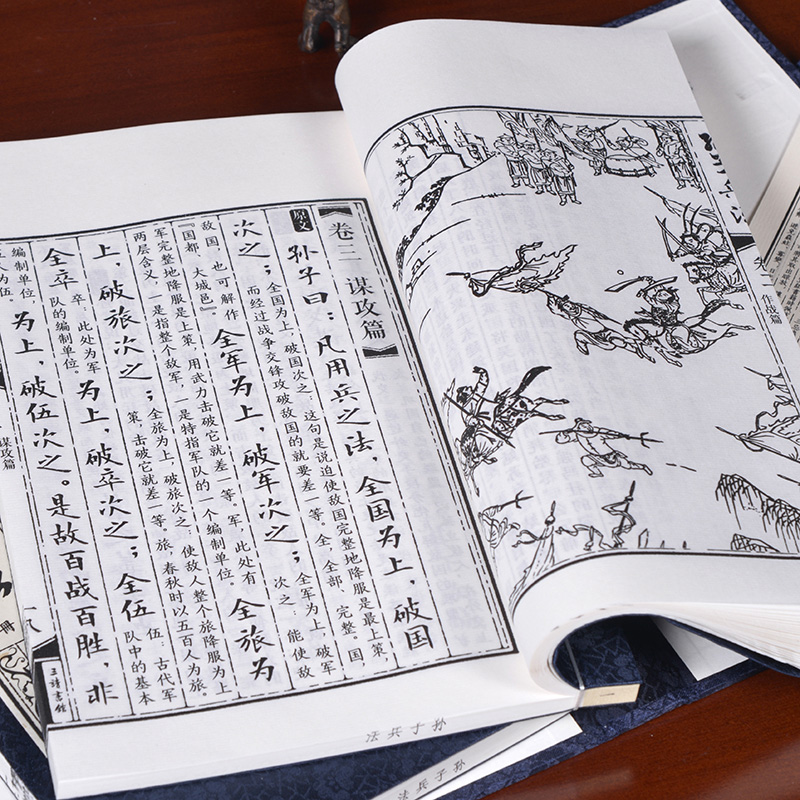 作战篇
卷三 谋攻篇
原文
孙子曰：凡用兵之法，全国为上，破国
次之；
全国为上，破国次之：这句是说迫使敌国完整地降服是最上策，
而经过战争交锋攻破敌国的就要差一等。全，全部、完整。国，
敌国，也可解作
『国都、大城邑』。
全军为上，破军次之；
全军为上，破军
次之，能使敌
军完整地降服是上策，用武力击破它就差一等。军，此处有
两层含义，一是指整个敌军，一是特指军队的一个编制单位。
全旅为
上，破旅次之；
全旅为上，破旅次之：使敌人整个旅降服为上
策，击破它就差一等。旅，春秋时以五百人为旅。
全卒
卒：此处为军
队的编制单位。
为上，破卒次之；全伍
伍：古代军
队中的基本
编制单位，
五人为伍。
为上，破伍次之。是故百战百胜，非
谋攻篇
孙子兵法
孙子兵法